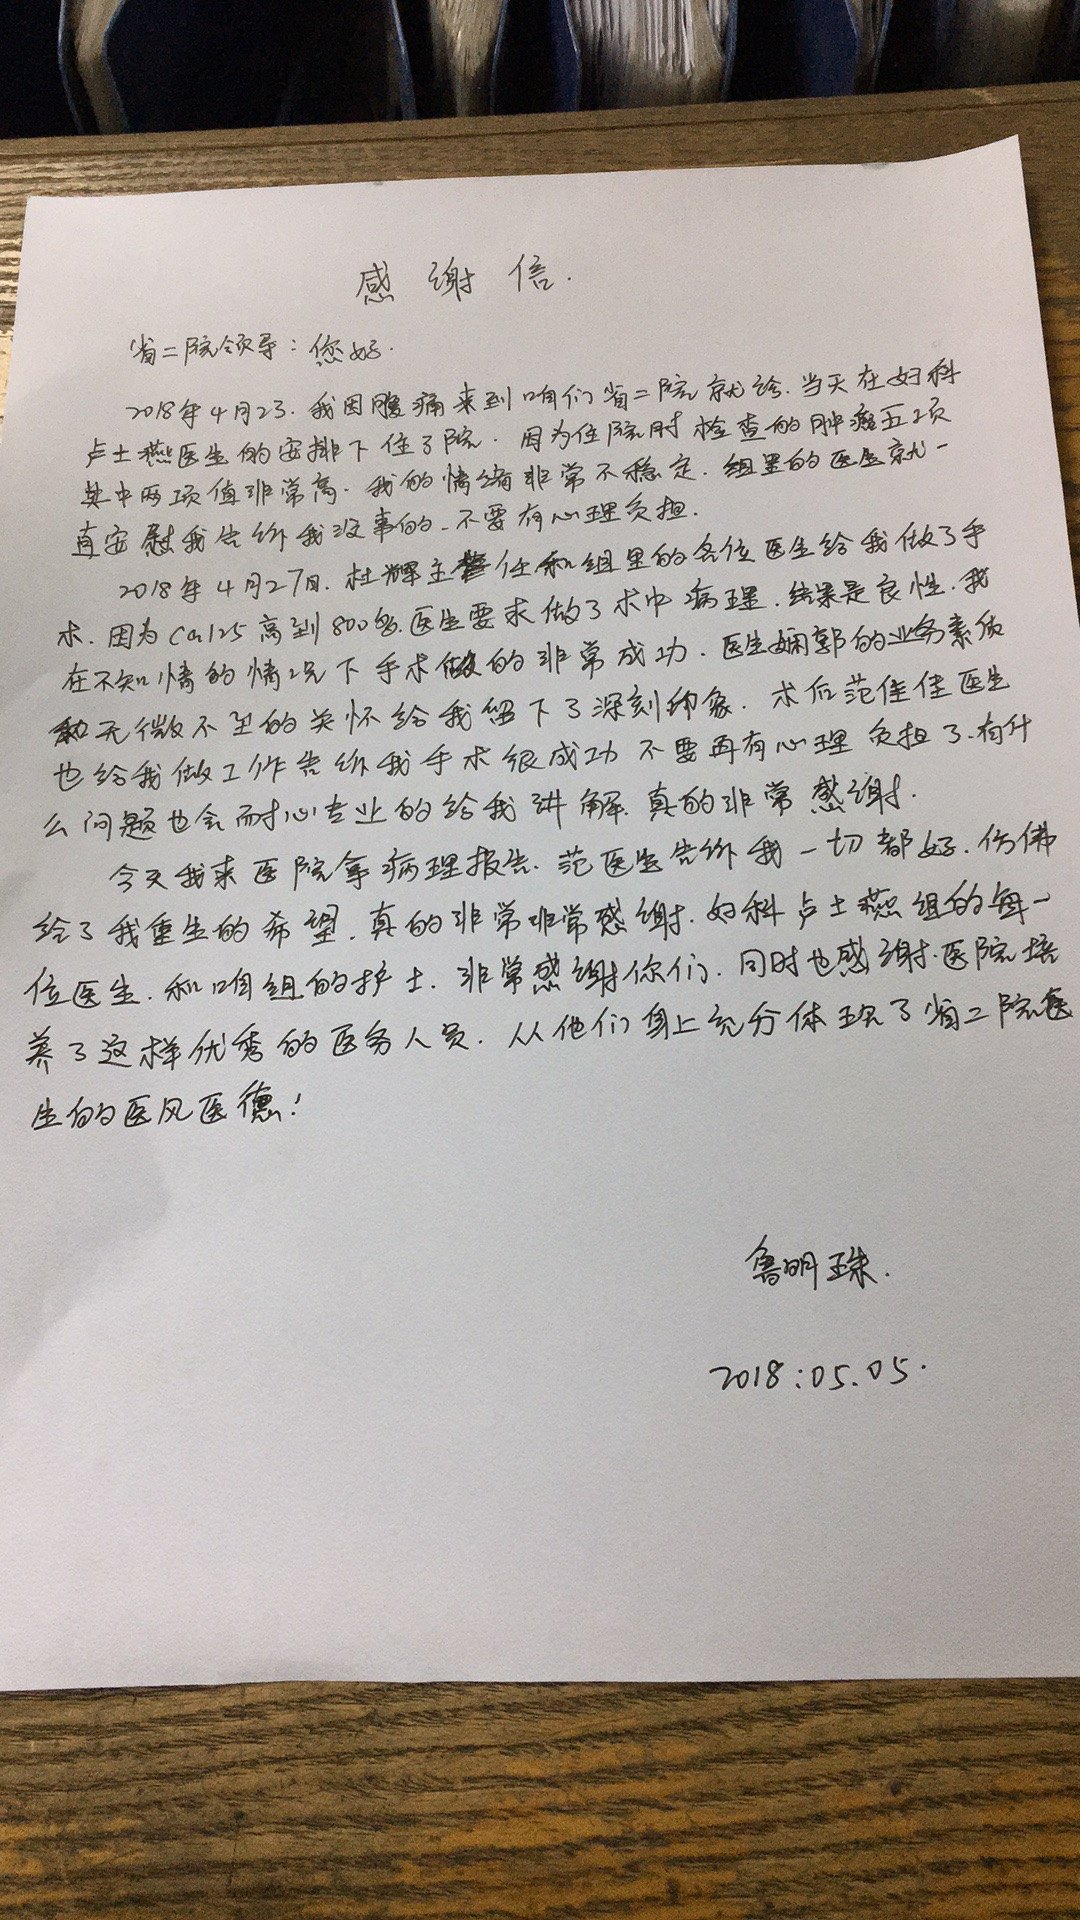 感谢信.
省二院领导：您好.
2018年4月23.我因腹痛来到咱们省二院就诊.当天在妇科
卢士燕医生的安排下住了院.因为住院时检查的肿瘤五项
其中两项值非常高.我的情绪非常不稳定.组里的医生就一
直安慰我告诉我没事的.不要有心理负担.
2018年4月27日.杜辉主任和组里的各位医生给我做了手
术.因为Ca125高到800多.医生要求做了术中病理.结果是良性.我
在不知情的情况下手术做的非常成功.医生娴郭的业务素质
和无微不至的关怀给我留下了深刻印象.术后范佳佳医生
也给我做工作告诉我手术很成功不要再有心理负担了.有什
么问题也会耐心专业的给我讲解.真的非常感谢.
今天我来医院拿病理报告.范医生告诉我一切都好.仿佛
给了我重生的希望.真的非常非常感谢.妇科卢士燕组的每一
位医生.和咱组的护士.非常感谢你们.同时也感谢.医院培
养了这样优秀的医务人员.从他们身上充分体现了省二院医
生的医风医德！
鲁明珠.
2018.05.05.